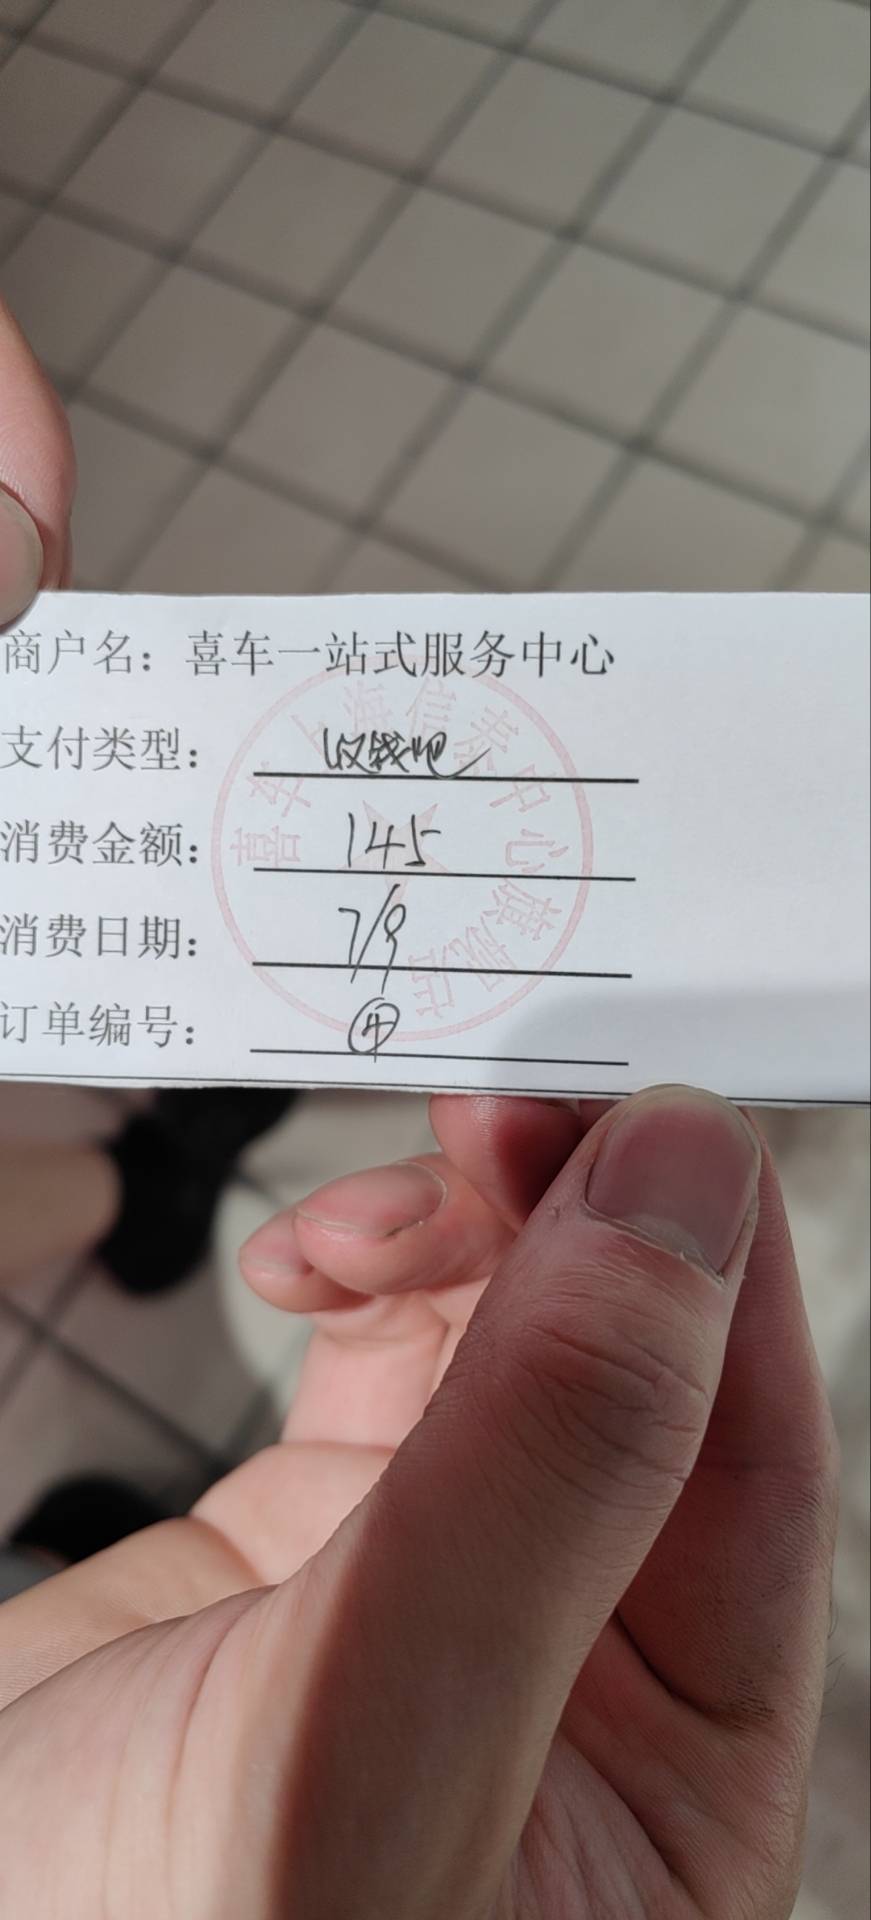 商户名：喜车一站式服务中心
支付类型：收钱吧
消费金额：145
消费日期：7/9
订单编号：④
喜车上海信泰中心旗舰店